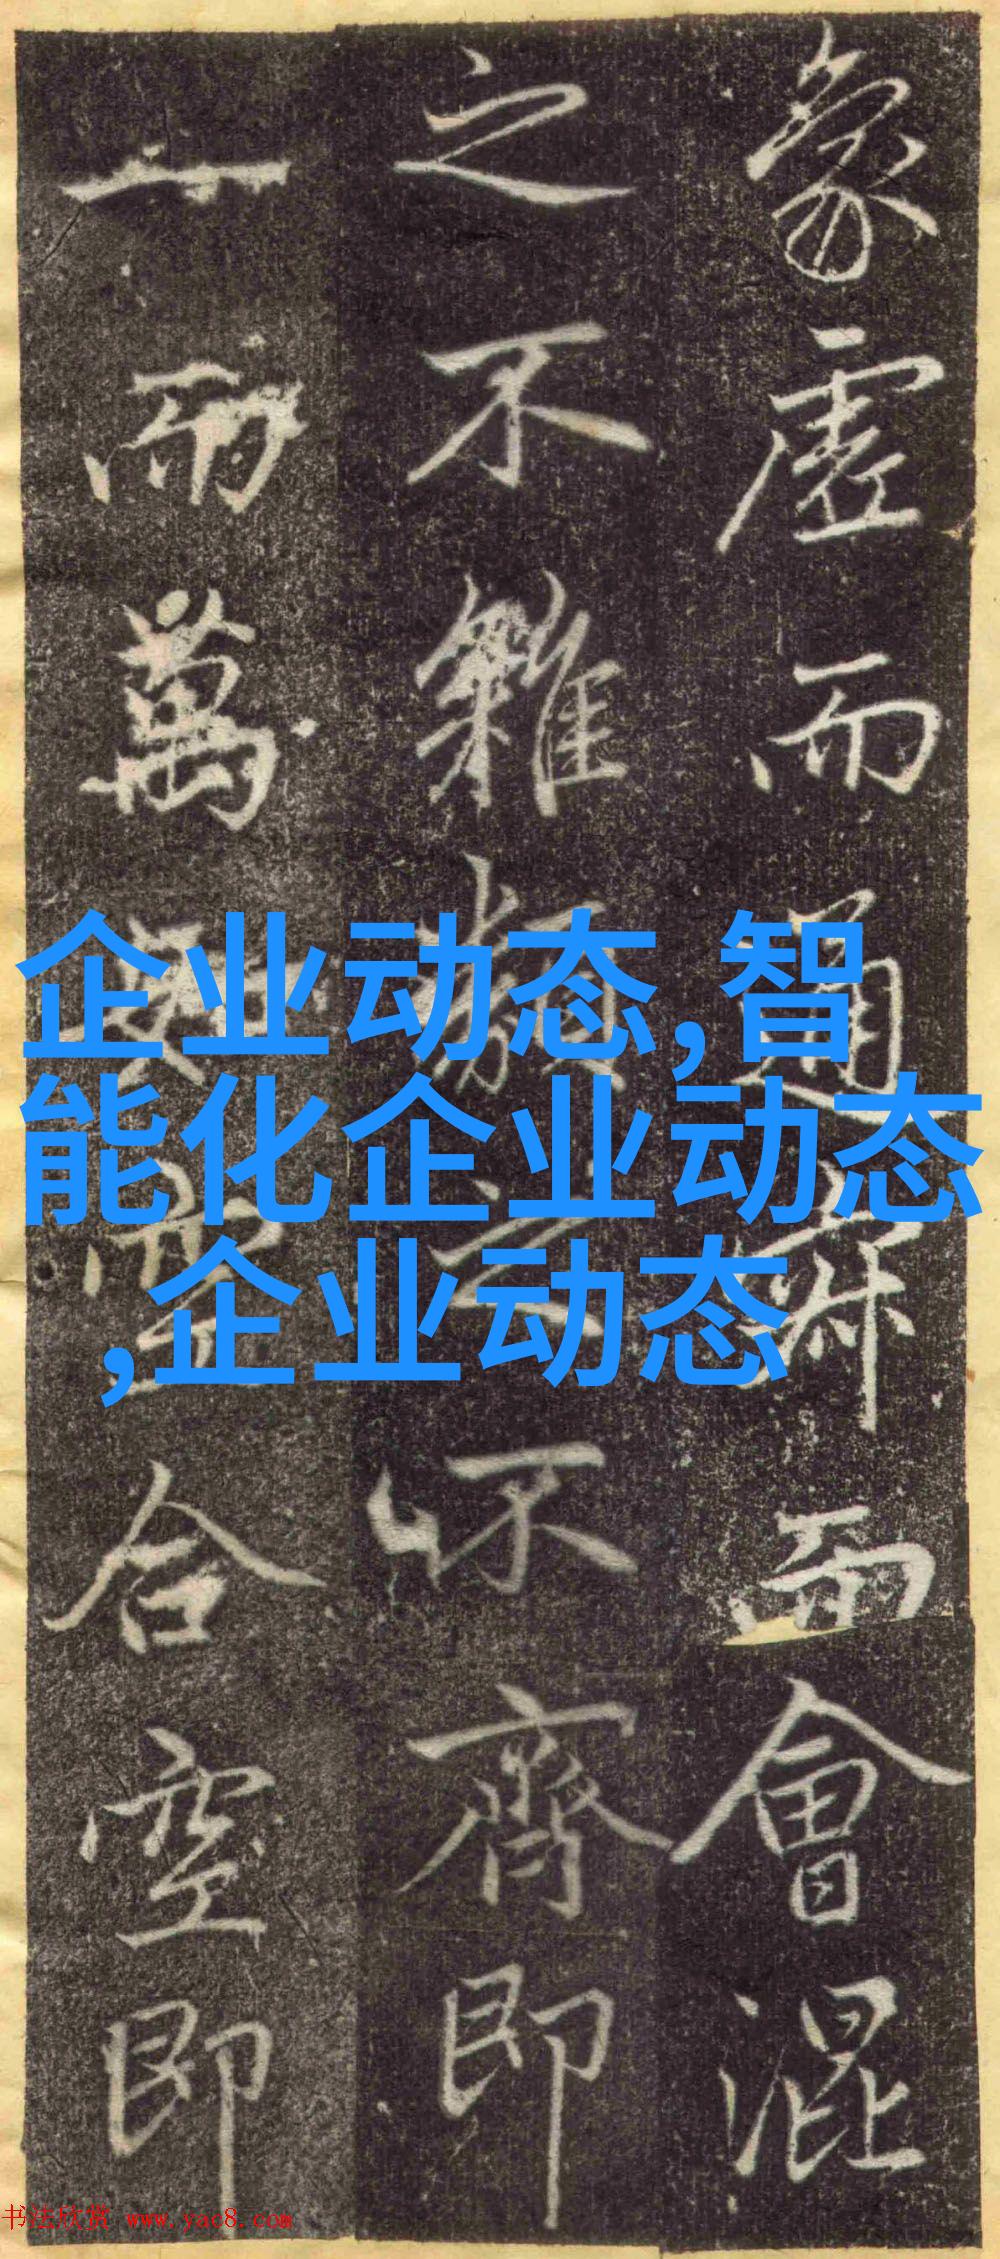 企业动态,智
能化企业动态
,企业动态
象虛而通而會混
之不雜類之不齊即
一而萬合空即
书法欣赏 www.yac8.com